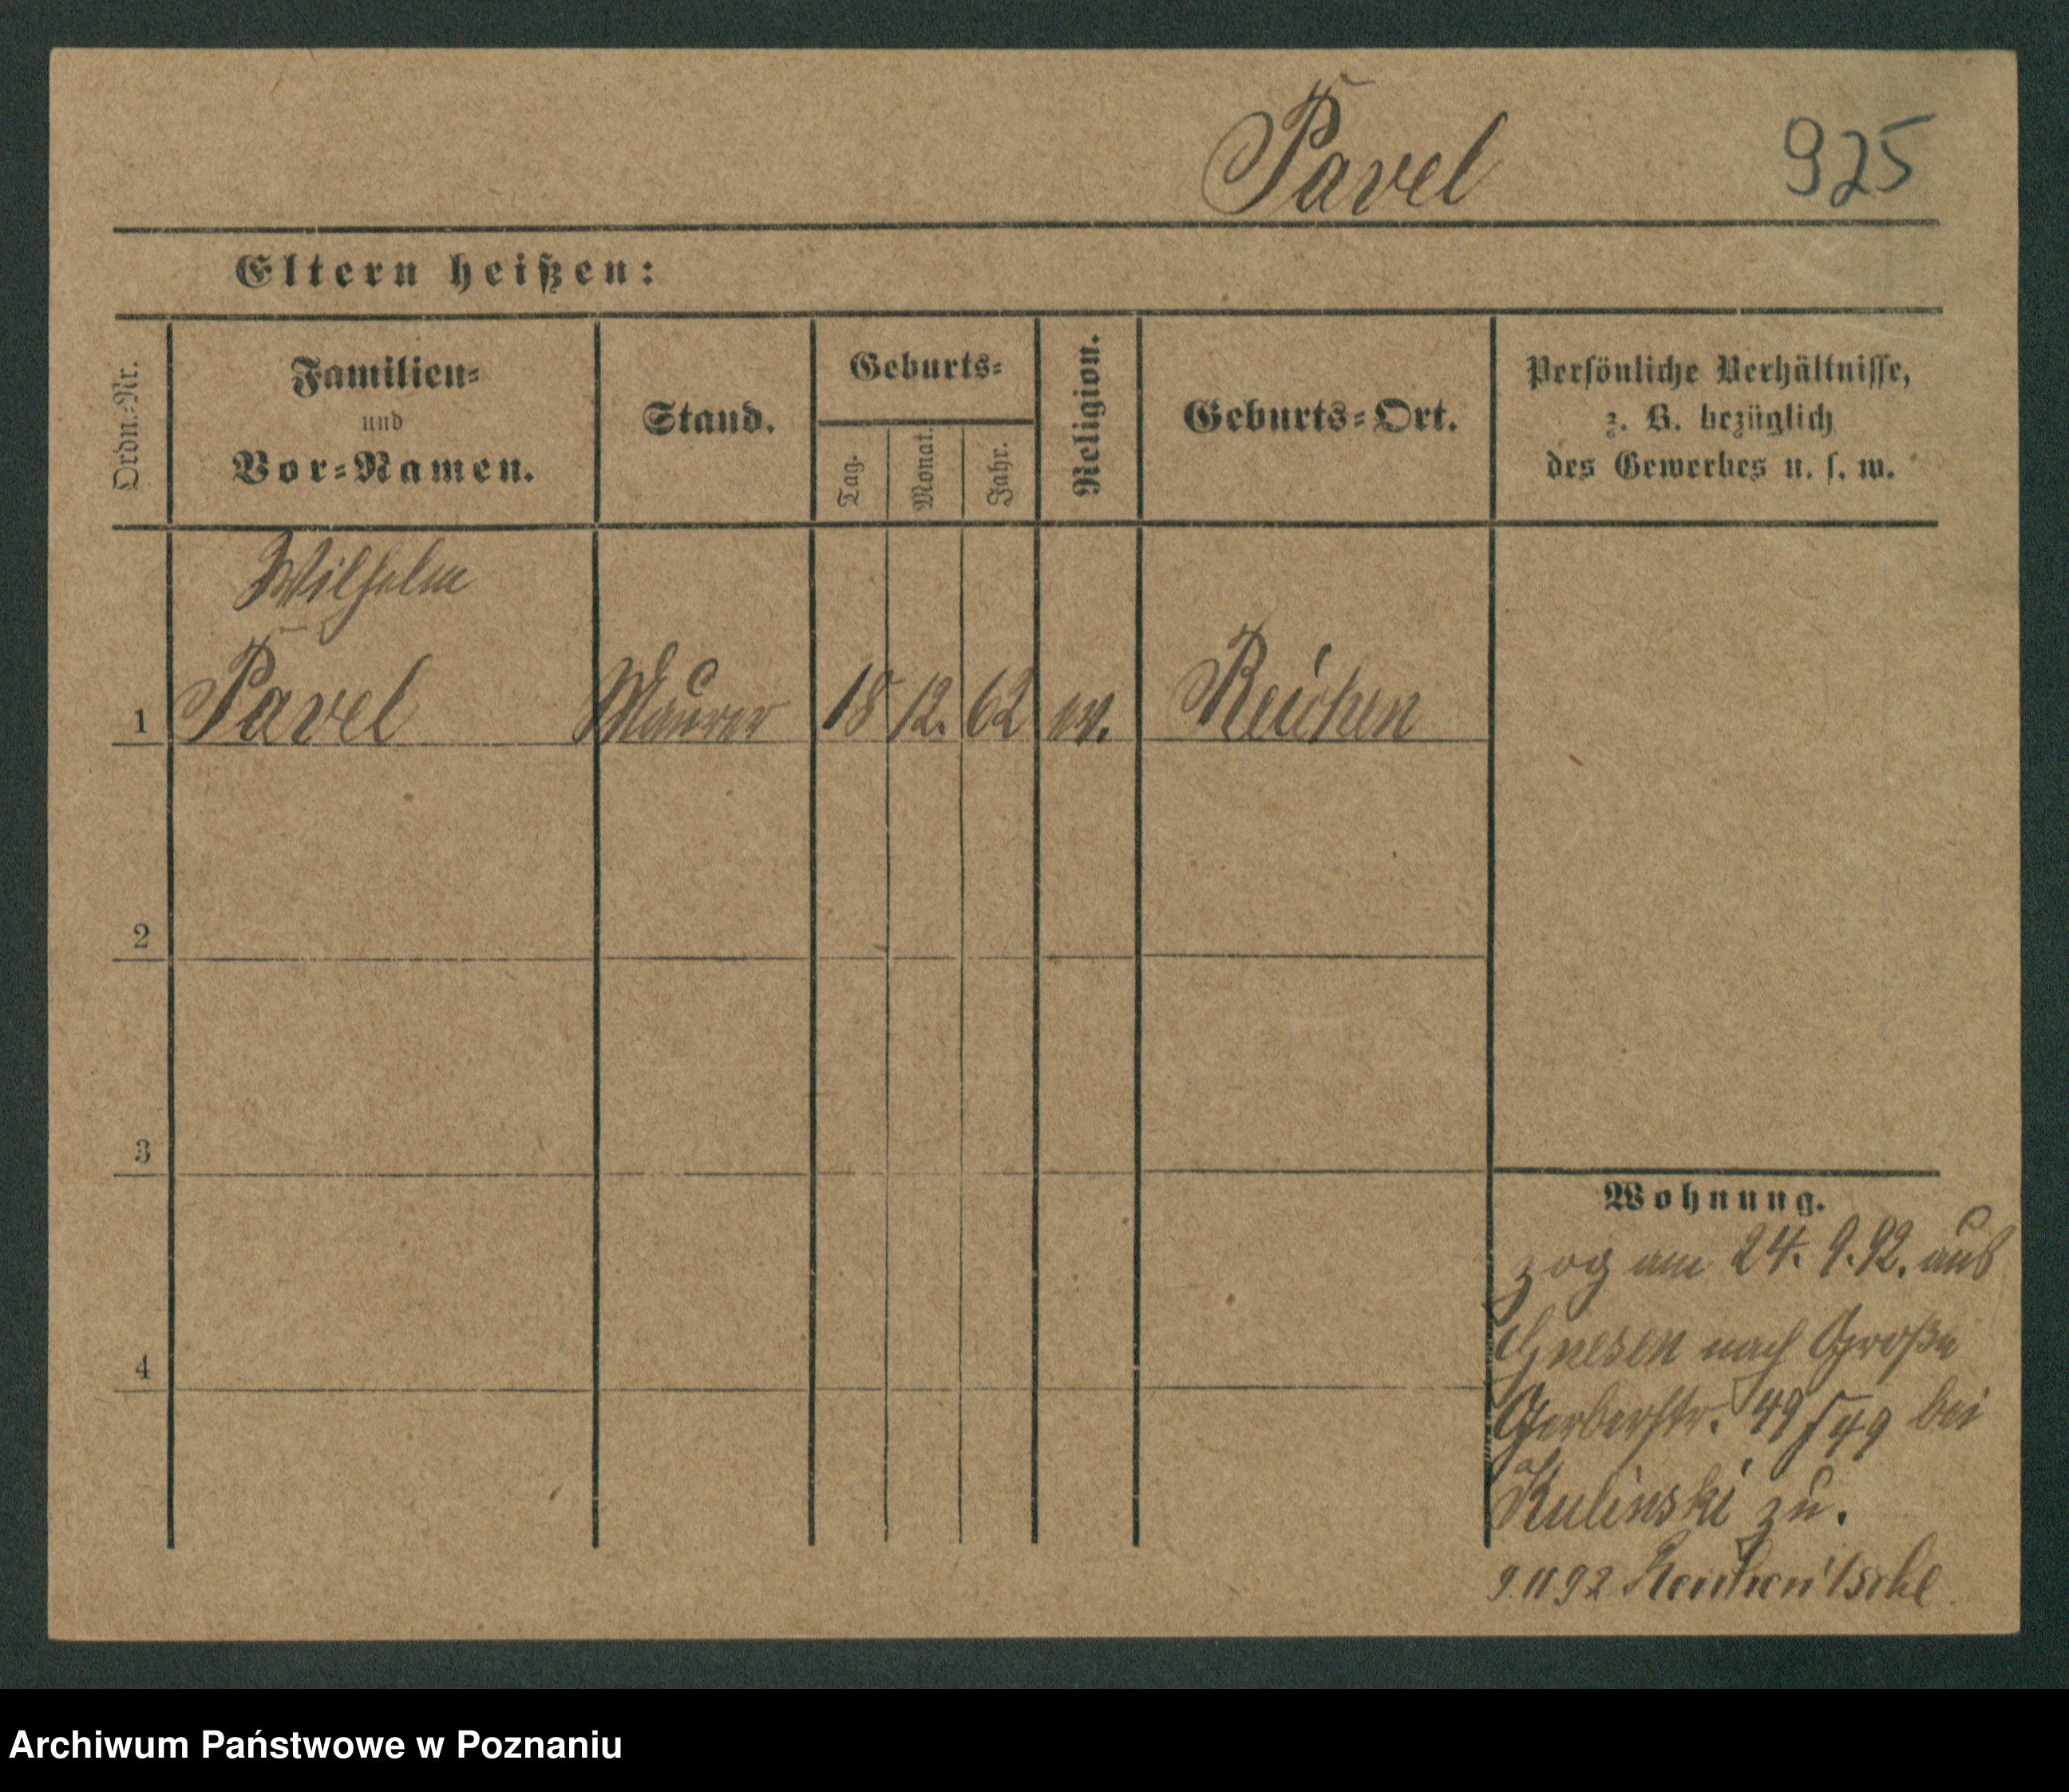 Pavel 925
Eltern heißen:
Ordn.-Nr.
Familien-
und
Vor-Namen.
Stand.
Geburts-
Tag.
Monat.
Jahr.
Religion.
Geburts-Ort.
Persönliche Verhältnisse,
z. B. bezüglich
des Gewerbes u. s. w.
Wilhelm
1 Pavel Maurer 18 12. 62 ev. Reichen
2
3
4
Wohnung.
zog am 24. 9. 92. aus
Gnesen nach Große
Gerberstr. 49/49 bei
Kulinski zu.
9.11.92
Archiwum Państwowe w Poznaniu